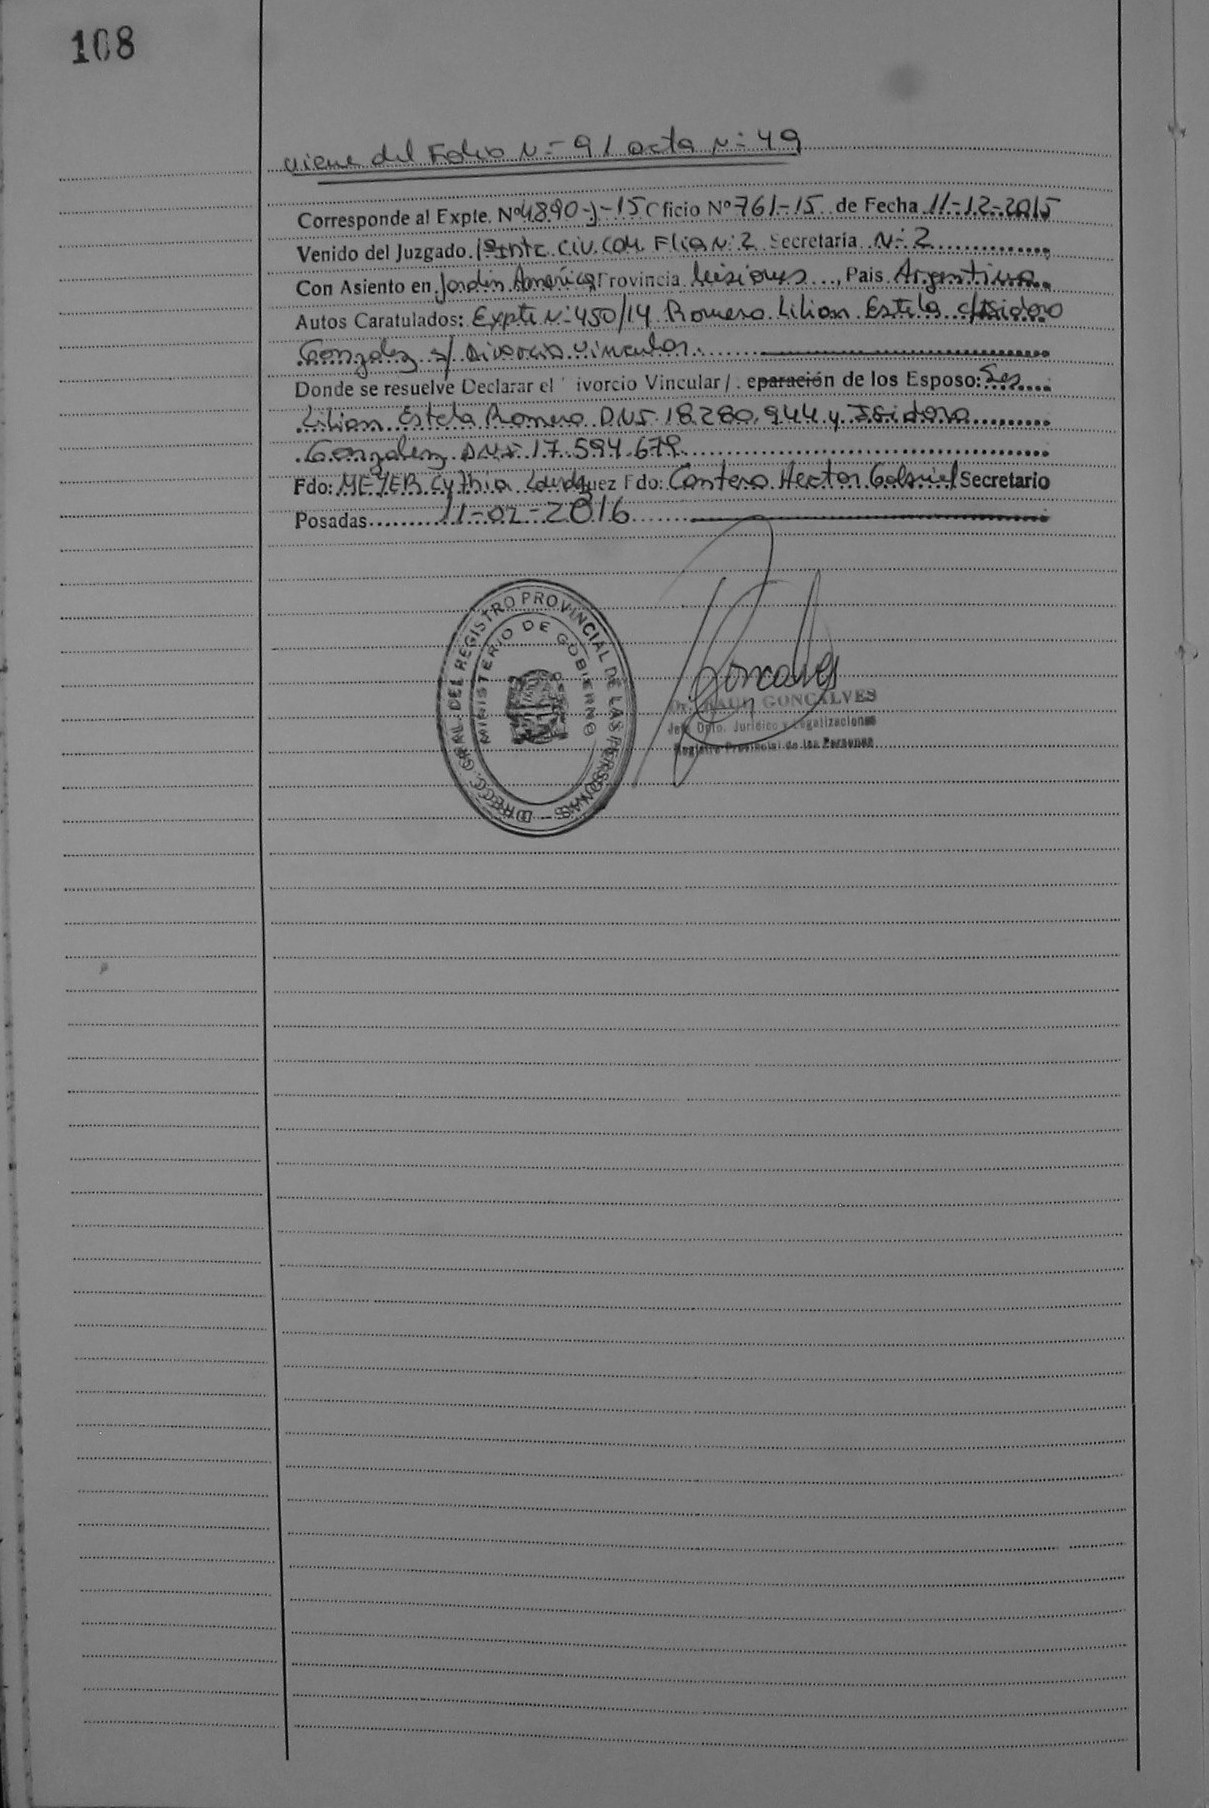 108
viene del Folio N=91 acta N=49
Corresponde al Expte. Nº 4890-J-15 Oficio Nº 761-15 de Fecha 11-12-2015
Venido del Juzgado 1º Inst. Civ. Com. Flia N: 2 Secretaría N: 2
Con Asiento en Jardin América Provincia Misiones, País Argentina
Autos Caratulados: Expte N:450/14 Romero Lilian Estela c/Isidoro
Gonzalez s/ Divorcio Vincular
Donde se resuelve Declarar el ivorcio Vincular/. eparación de los Esposo: Sres
Lilian Estela Romero DNI 18.280.944 y Isidoro
Gonzalez DNI 17.594.679
Fdo: MEYER Cythia Juez Fdo: Cantero Hector Gabriel Secretario
Posadas 11-02-2016
DIRECC. GRAL. DEL REGISTRO PROVINCIAL DE LAS PERSONAS
MINISTERIO DE GOBIERNO
Goncalves
RAUL GONCALVES
Jefe Dpto. Jurídico y Legalizaciones
Registro Provincial de las Personas